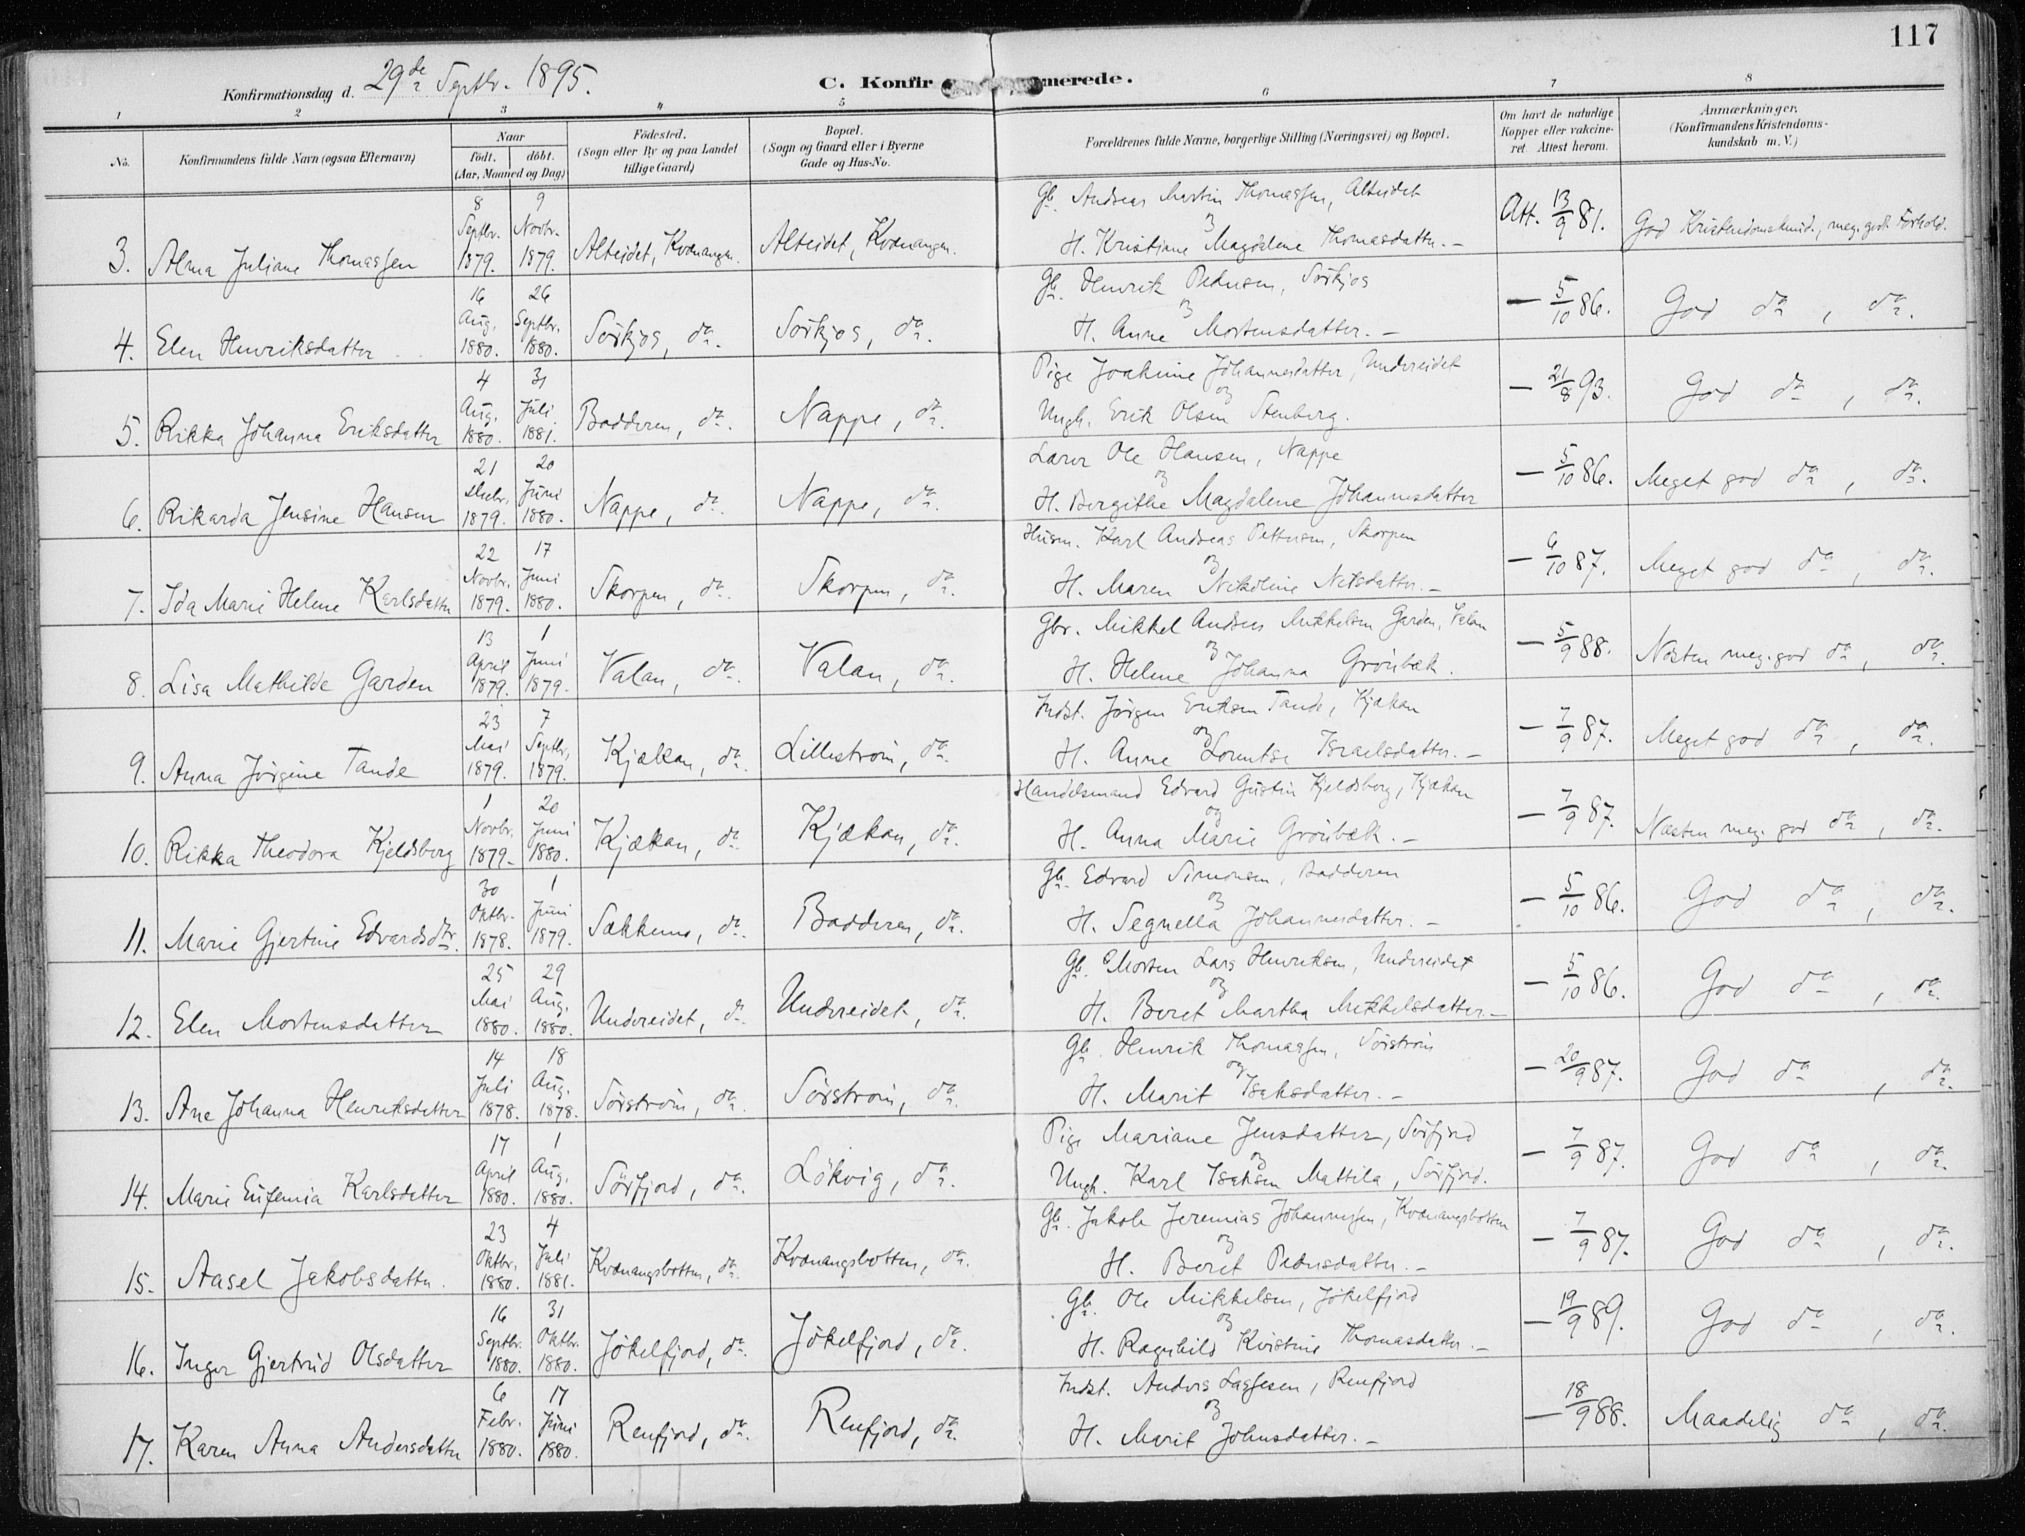 117
Konfirmationsdag d. 29de Septbr. 1895.
C. Konfirmerede.
1 2 3 4 5 6 7 8
No.
Konfirmandens fulde Navn (ogsaa Efternavn)
Naar
födt. döbt.
(Aar, Maaned og Dag)
Födested.
(Sogn eller By og paa Landet
tillige Gaard)
Bopæl.
(Sogn og Gaard eller i Byerne
Gade og Hus-No.
Forældrenes fulde Navne, borgerlige Stilling (Næringsvei) og Bopæl.
Om havt de naturlige
Kopper eller vakcine-
ret. Attest herom.
Anmærkninger.
(Konfirmandens Kristendoms-
kundskab m. V.)
3. Alma Juliane Thomassen 8 Septbr. 1879. 9 Novbr. 1879. Alteidet, Kvænangen. Alteidet, Kvænangen.
Gb. Andreas Martin Thomassen, Alteidet
og
H. Kristiane Magdalene Thomasdatter. –
Att. 13/9 81. God Kristendomskund., meg. godt Forhold.
4. Elen Henriksdatter 16 Aug. 1880. 26 Septbr. 1880. Sörkjos, do. Sörkjos, do.
Gb. Henrik Pedersen, Sörkjos
og
H. Anne Mortensdatter. –
– 5/10 86. God do, do.
5. Rikka Johanna Eriksdatter 4 Aug. 1880. 31 Juli 1881. Badderen, do. Nappe, do.
Pige Joakime Johannesdatter, Undereidet
og
Ungk. Erik Olsen Stenberg.
– 21/8 93. God do, do.
6. Rikarda Jensine Hansen 21 Decbr. 1879. 20 Juni 1880. Nappe, do. Nappe, do.
Lærer Ole Hansen, Nappe
og
H. Bergithe Magdalene Johannesdatter
– 5/10 86. Meget god do, do.
7. Ida Marie Helene Karlsdatter 22 Novbr. 1879. 17 Juni 1880. Skorpen, do. Skorpen, do.
Husm. Karl Andreas Pettersen, Skorpen
og
H. Maren Nikoline Nilsdatter. –
– 6/10 87. Meget god do, do.
8. Lisa Mathilde Garden 13 April 1879. 1 Juni 1879. Valan, do. Valan, do.
Gbr. Mikkel Andreas Mikkelsen Garden, Valan
og
H. Helene Johanna Grönbæk.
– 5/9 88. Næsten meg. god do, do.
9. Anna Jörgine Tande 23 Mai 1879. 7 Septbr. 1879. Kjækan, do. Lilleström, do.
Indst. Jörgen Eriksen Tande, Kjækan
og
H. Anne Lorentse Israelsdatter. –
– 7/9 87. Meget god do, do.
10. Rikka Theodora Kjeldsberg 1 Novbr. 1879. 20 Juni 1880. Kjækan, do. Kjækan, do.
Handelsmand Edvard Gustin Kjeldsberg, Kjækan
og
H. Anna Marie Grönbæk. –
– 7/9 87. Næsten meg. god do, do.
11. Marie Gjertine Edvardsdtr. 30 Oktbr. 1878. 1 Juni 1879. Sækkemo, do. Badderen, do.
Gb. Edvard Simonsen, Badderen
og
H. Segnella Johannesdatter. –
– 5/10 86. God do, do.
12. Elen Mortensdatter 25 Mai 1880. 29 Aug. 1880. Undereidet, do. Undereidet, do.
Gb. Morten Lars Henriksen, Undereidet
og
H. Beret Martha Mikkelsdatter –
– 5/10 86. God do, do.
13. Ane Johanna Henriksdatter 14 Juli 1878. 18 Aug. 1878. Sörström, do. Sörström, do.
Gb. Henrik Thomassen, Sörström
og
H. Marit Isaksdatter. –
– 20/9 87. God do, do.
14. Marie Eufemia Karlsdatter 17 April 1880. 1 Aug. 1880. Sörfjord, do. Lökvig, do.
Pige Mariane Jensdatter, Sörfjord
og
Ungk. Karl Isaksen Mattila, Sörfjord.
– 7/9 87. God do, do.
15. Aasel Jakobsdatter. 23 Oktbr. 1880. 4 Juli 1881. Kvænangsbotten, do. Kvænangsbotten, do.
Gb. Jakob Jeremias Johannessen, Kvænangsbotten
og
H. Beret Pedersdatter. –
– 7/9 87. God do, do.
16. Inger Gjertrud Olsdatter 16 Septbr. 1880. 31 Oktbr. 1880. Jökelfjord, do. Jökelfjord, do.
Gb. Ole Mikkelsen, Jökelfjord
og
H. Ragnhild Kristine Thomasdatter. –
– 19/9 89. God do, do.
17. Karen Anna Andersdatter 6 Febr. 1880. 17 Juni 1880. Renfjord, do. Renfjord, do.
Indst. Anders Lassesen, Renfjord
og
H. Marit Johnsdatter. –
– 18/9 88. Maadelig do, do.